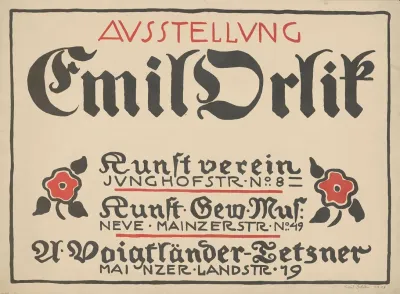 AVSSTELLVNG
Emil Orlik
Kunstverein
JVNGHOFSTR·No.8=
Kunst·Gew·Mus:
NEVE·MAINZERSTR·No49
A·Voigtländer-Tetzner
MAINZER·LANDSTR·19